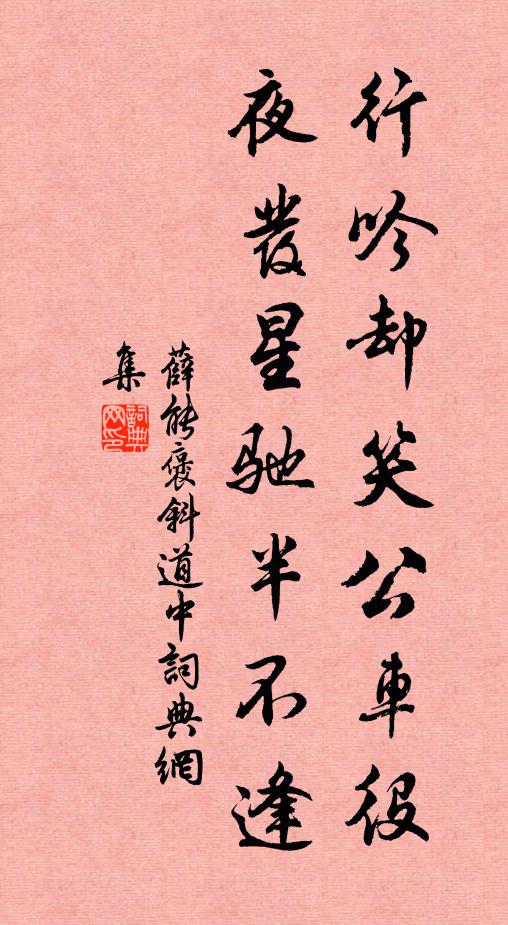 行吟却笑公車役
夜發星馳半不逢
薛能褒斜道中詞典網
集
詞典
网印